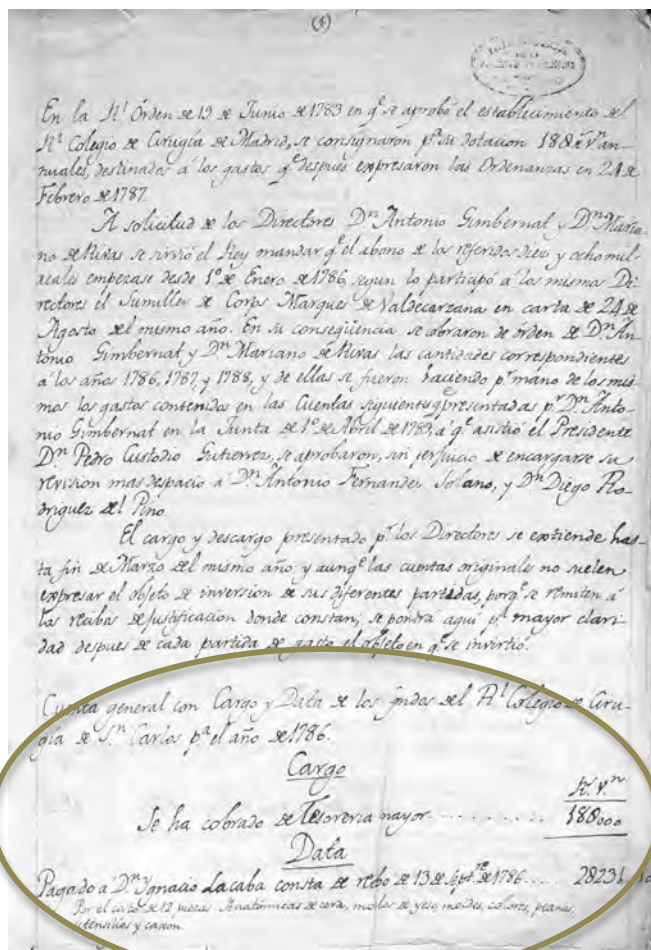 (1)
En la Rl. Órden de 19 de Junio de 1783 en q.e se aprobó el establecimiento del
Rl. Colegio de Cirugía de Madrid, se consignaron p.a su dotacion 180 R.s v.n an-
nuales, destinados á los gastos q.e despues expresaron las Ordenanzas en 24 de
Febrero de 1787.
A solicitud de los Directores D.n Antonio Gimbernat y D.n Maria-
no de Rivas se sirvió el Rey mandar q.e el abono de los referidos diez y ocho mil
reales empezase desde 1.º de Enero de 1786, segun lo participó á los mismos Di-
rectores el Sumiller de Corps Marques de Valdecarzana en carta de 24 de
Agosto del mismo año. En su conseqüencia se cobraron de órden de D.n An-
tonio Gimbernat y D.n Mariano de Rivas las cantidades correspondientes
á los años 1786, 1787, y 1788, y de ellas se fueron haciendo p.r mano de los mis-
mos los gastos contenidos en las Cuentas siguientes q.e presentadas p.r D.n Anto-
nio Gimbernat en la Junta de 1.º de Abril de 1789, á q.e asistió el Presidente
D.n Pedro Custodio Gutierrez, se aprobaron, sin perjuicio de encargarse su
revision mas despacio á D.n Antonio Fernandez Solano, y D.n Diego Ro-
driguez del Pino.
El cargo y descargo presentado p.r los Directores se extiende has-
ta fin de Marzo del mismo año, y aunq.e las cuentas originales no suelen
expresar el objeto de inversion de sus diferentes partidas, porq.e se remiten á
los recibos de justificacion donde constan, se pondrá aqui p.a mayor clari-
dad despues de cada partida de gasto el objeto en q.e se invirtió.
Cuenta general con Cargo y Data de los fondos del Rl. Colegio de Ciru-
gía de S.n Carlos p.a el año de 1786.
Cargo
R.s v.n
Se ha cobrado de Tesoreria mayor . . . . . . . . . 180000
Data
Pagado á D.n Ignacio Lacaba consta de recibo de 13 de Sept.re de 1786 . . . . 28231
Por el costo de 12 piezas Anatómicas de cera, moldes de yeso, moldes, colores, peanas,
utensilios y caxon.